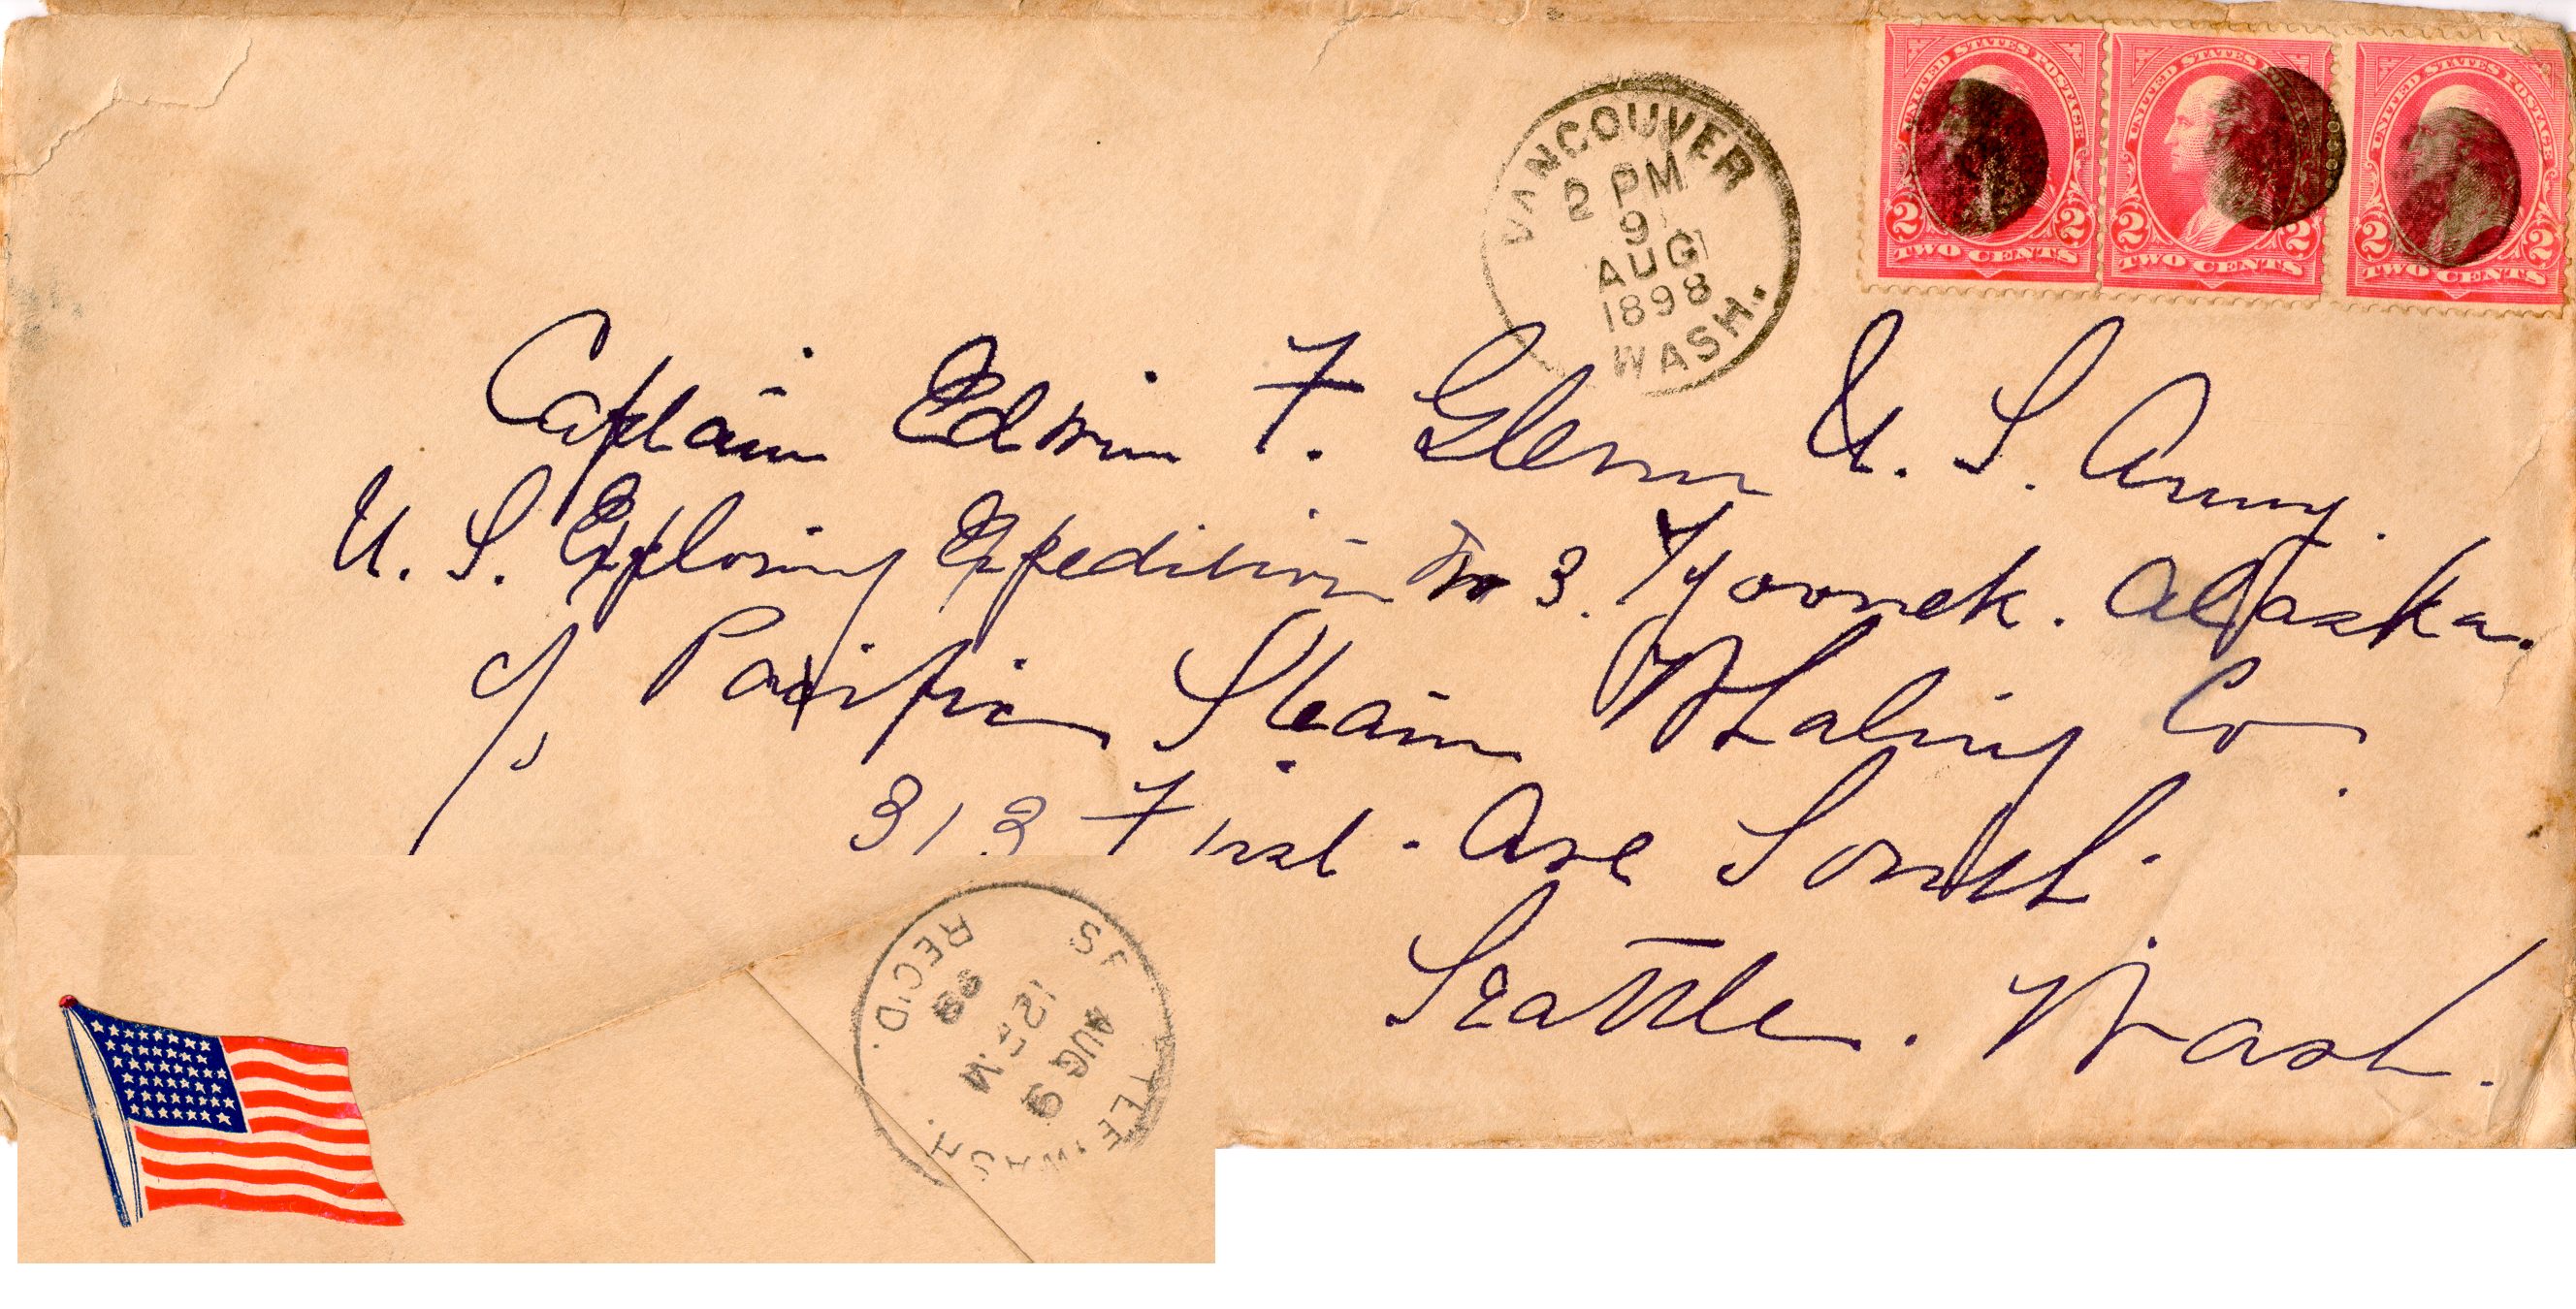 UNITED STATES POSTAGE
2 2
TWO CENTS
UNITED STATES POSTAGE
2 2
TWO CENTS
UNITED STATES POSTAGE
2 2
TWO CENTS
VANCOUVER
2 PM
9
AUG
1898
WASH.
Captain Edwin F. Glenn U. S. Army.
U. S. Exploring Expedition No 3. Tyoonek. Alaska.
c/o Pacific Steam Whaling Co.
313 First. Ave South.
Seattle. Wash.
SEATTLE, WASH.
AUG 9
12 M
98
REC'D.